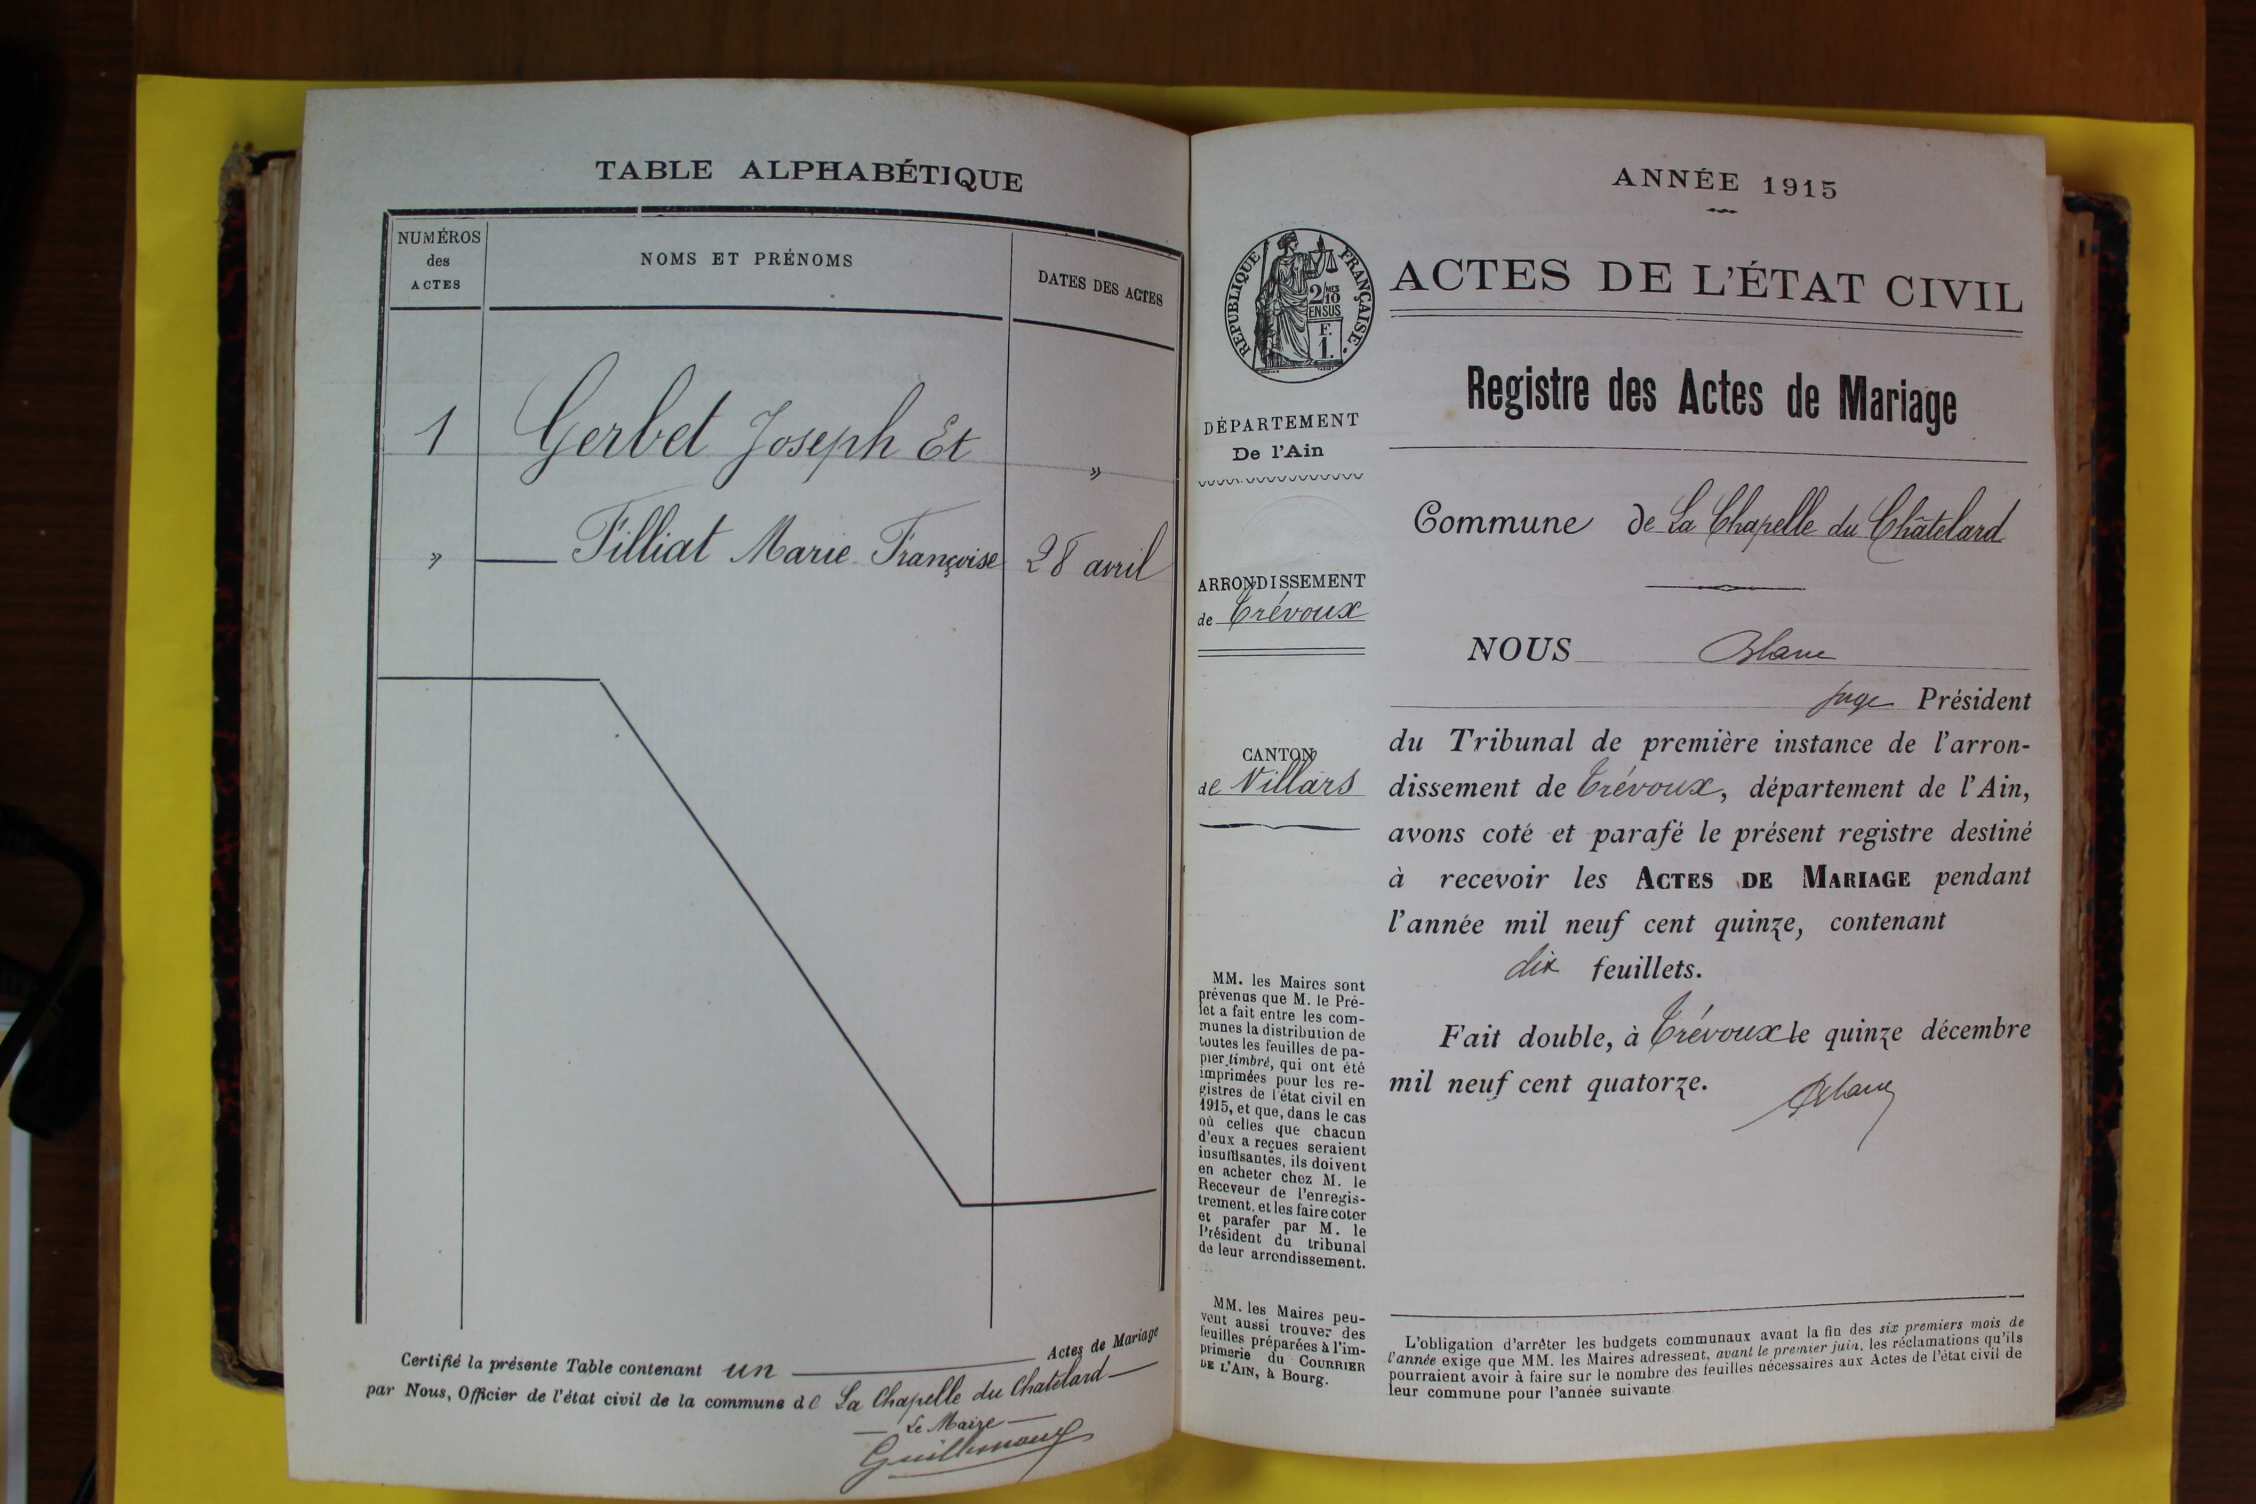 TABLE ALPHABÉTIQUE
NUMÉROS
des
ACTES
NOMS ET PRÉNOMS
DATES DES ACTES
1 Gerbet Joseph Et "
" — Filliat Marie Françoise 28 avril
Certifié la présente Table contenant un — Actes de Mariage
par Nous, Officier de l'état civil de la commune de La Chapelle du Chatelard —
— Le Maire —
ANNÉE 1915
RÉPUBLIQUE FRANÇAISE.
2/10
MES
EN SUS
F.
1.
DÉPARTEMENT
De l'Ain
ARRONDISSEMENT
de Trévoux
CANTON
de Villars
MM. les Maires sont
prévenus que M. le Pré-
fet a fait entre les com-
munes la distribution de
toutes les feuilles de pa-
pier timbré, qui ont été
imprimées pour les re-
gistres de l'état civil en
1915, et que, dans le cas
où celles que chacun
d'eux a reçues seraient
insuffisantes, ils doivent
en acheter chez M. le
Receveur de l'enregis-
trement, et les faire coter
et parafer par M. le
Président du tribunal
de leur arrondissement.
MM. les Maires peu-
vent aussi trouver des
feuilles préparées à l'im-
primerie du COURRIER
DE L'AIN, à Bourg.
ACTES DE L'ÉTAT CIVIL
Registre des Actes de Mariage
Commune de La Chapelle du Châtelard
NOUS Blanc
juge Président
du Tribunal de première instance de l'arron-
dissement de Trévoux, département de l'Ain,
avons coté et parafé le présent registre destiné
à recevoir les ACTES DE MARIAGE pendant
l'année mil neuf cent quinze, contenant
dix feuillets.
Fait double, à Trévoux le quinze décembre
mil neuf cent quatorze.
Blanc
L'obligation d'arrêter les budgets communaux avant la fin des six premiers mois de
l'année exige que MM. les Maires adressent, avant le premier juin, les réclamations qu'ils
pourraient avoir à faire sur le nombre des feuilles nécessaires aux Actes de l'état civil de
leur commune pour l'année suivante.